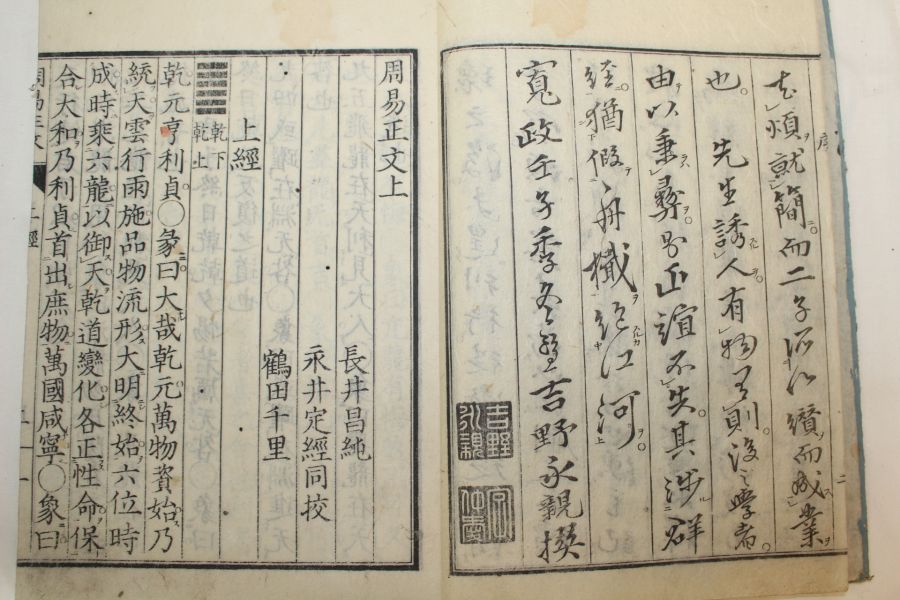 序
去煩就簡而二子所以纘而成業
也先生誘人有物有則後之學者
由以秉彝則正誼不失其涉群
經猶假舟檝絕江河
寬政壬子季冬 吉野永親撰
吉野
永親
二
周易正文上
長井昌純
永井定經同挍
鶴田千里
上經
乾下
乾上
乾元亨利貞〇彖曰大哉乾元萬物資始乃
統天雲行雨施品物流形大明終始六位時
成時乘六龍以御天乾道變化各正性命保
合大和乃利貞首出庶物萬國咸寧〇象曰
上經